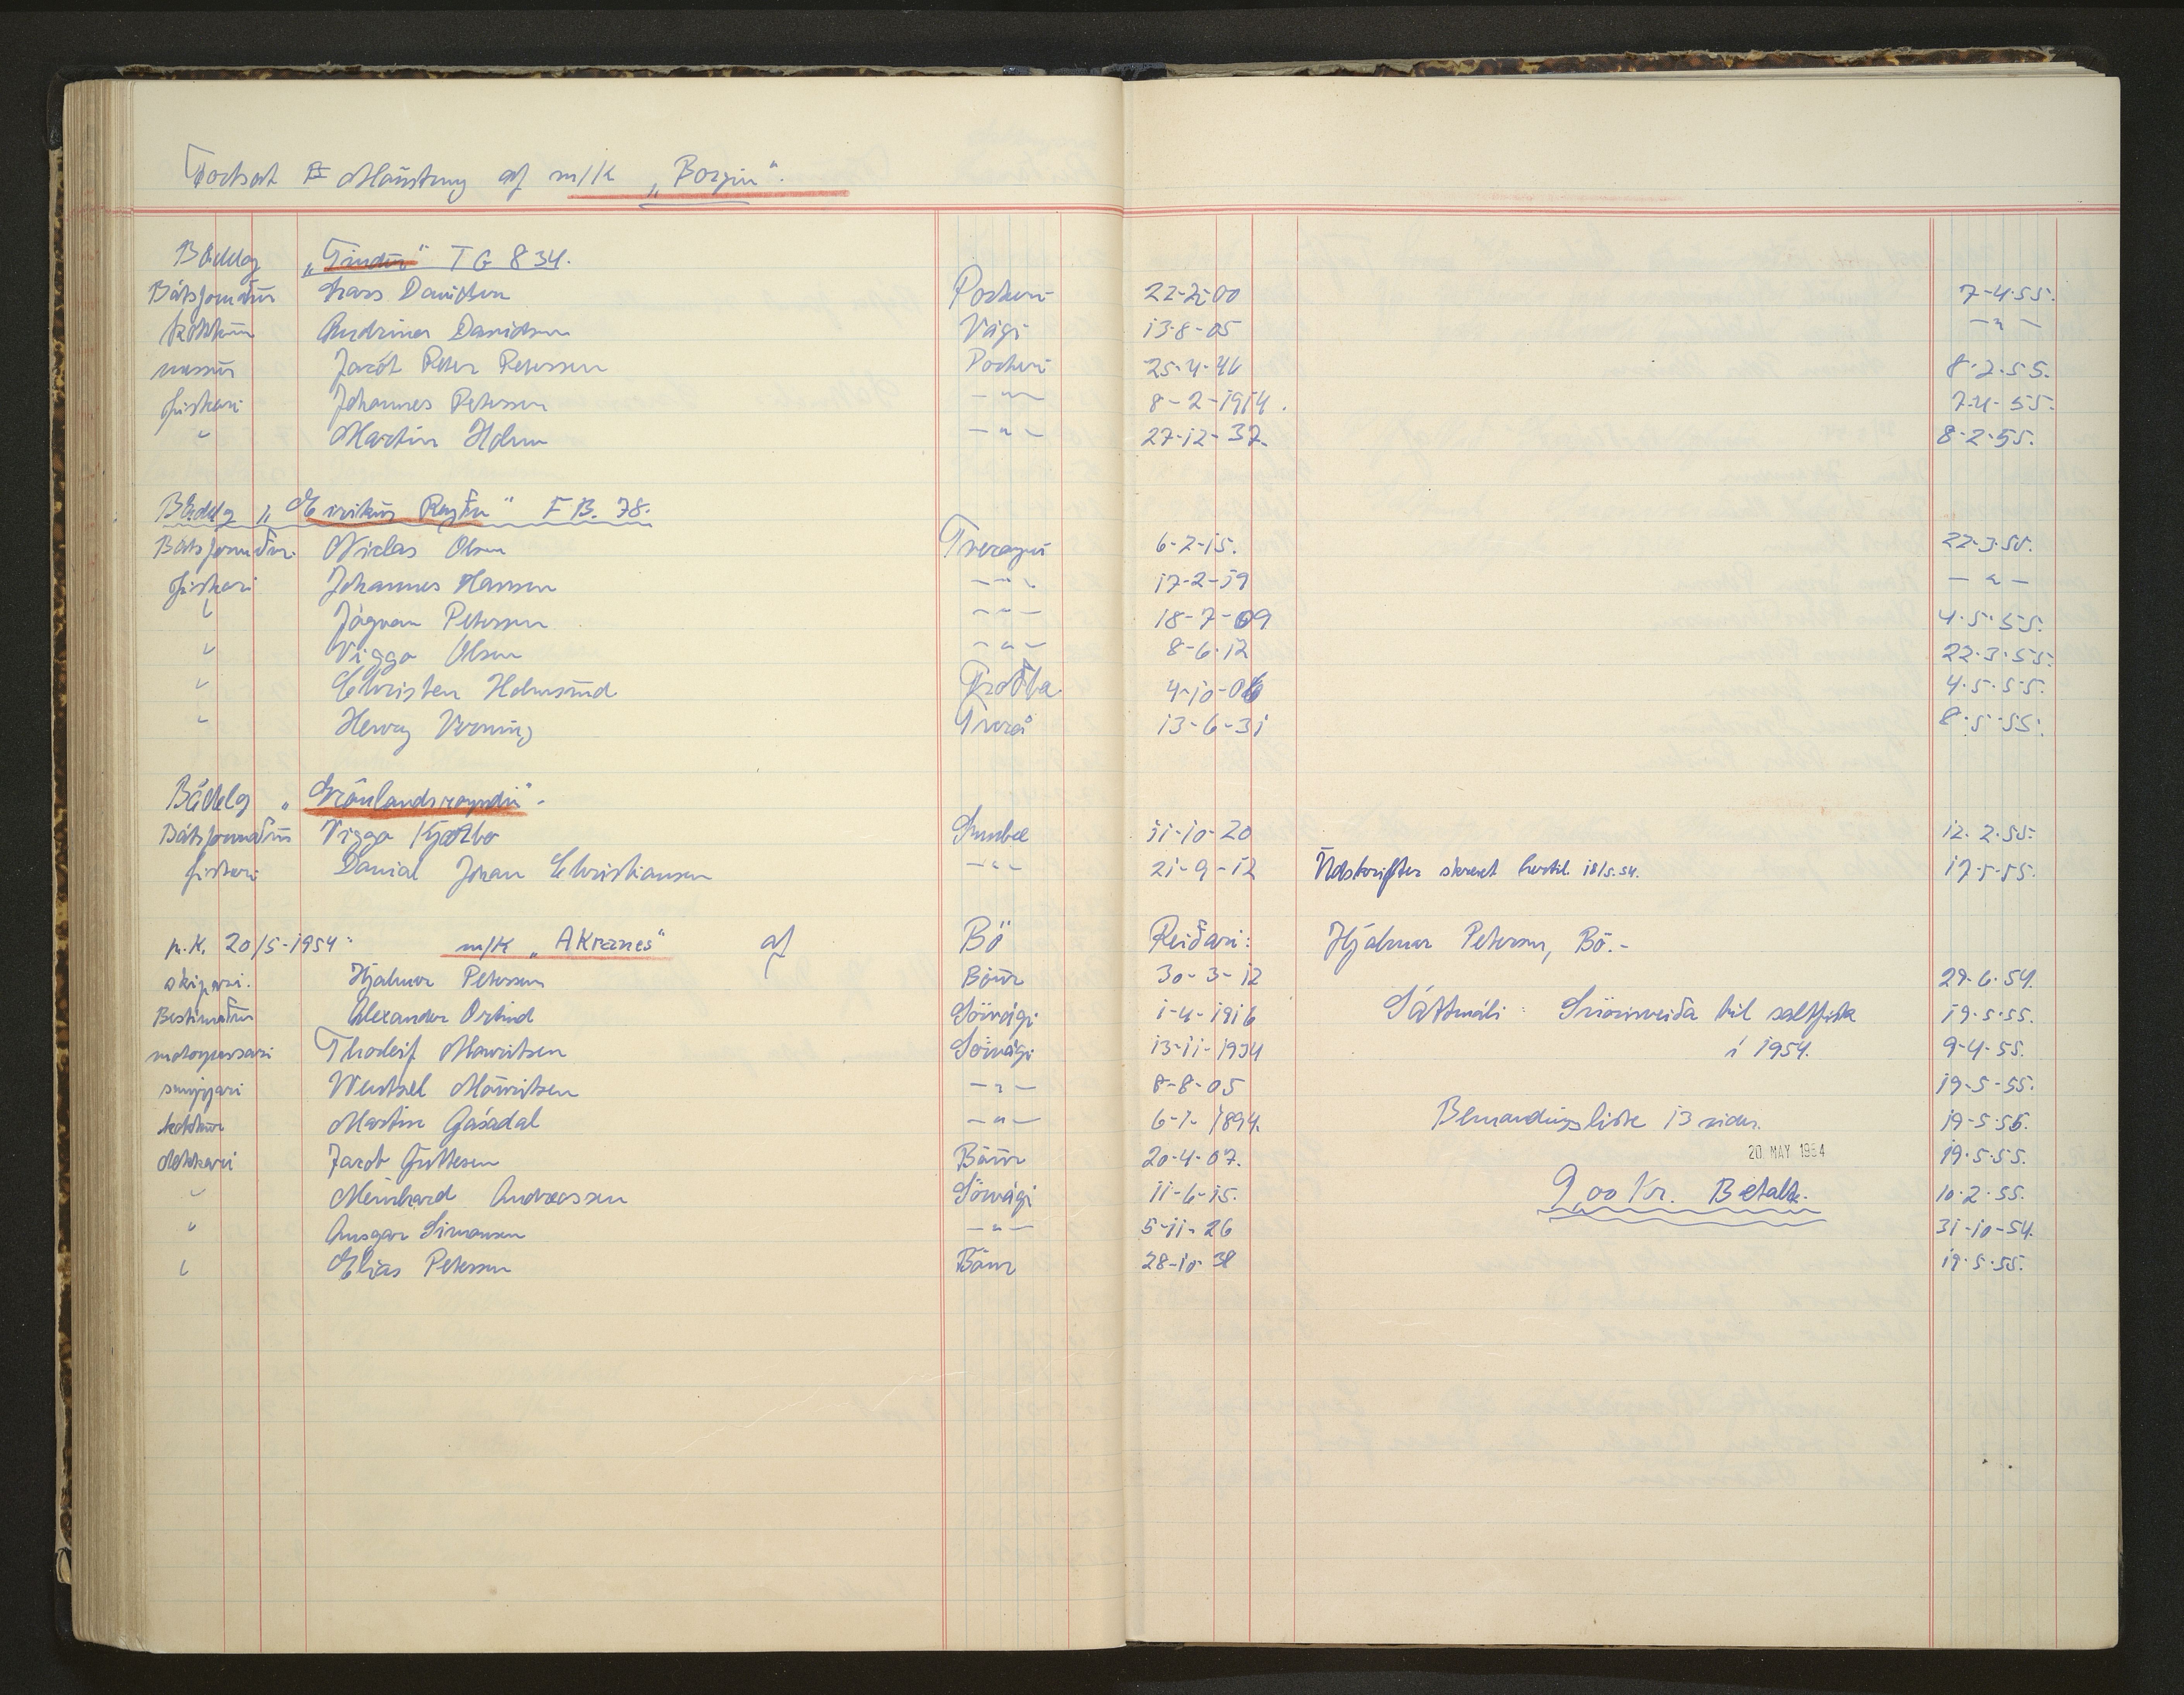 Fortsat Mønstring af m/k „Borgin".
Bádelag „Tindur" TG 834.
Bátsformaður Hans Davidsen Porkeri 22-2-00 7-4-55.
kokkur Andrina Davidsen Vági 13-8-05 -"-
messur Jacob Peter Petersen Porkeri 25-4-40 8-2-55.
fiskari Johannes Petersen -"- 8-2-1914. 7-4-55.
" Martin Holm -"- 27-12-37. 8-2-55.
Bádelag „Eirikur Reyði" FB. 78.
Bátsformaður Niclas Olsen Tveroyri 6-2-15. 22-3-55.
fiskari Johannes Hansen -"- 17-2-19 -"-
" Jógvan Petersen -"- 18-7-09 4-5-55.
" Viggo Olsen -"- 8-6-12 22-3-55.
" Christen Holmsund Froðba 4-10-06 4-5-55.
" Henry Vroning Tverá 13-6-31 8-5-55.
Bádelag „Grønlandsroyndin".
Bátsformaður Viggo Kjølbo Sumbø 11-10-20 12-2-55.
fiskari Danial Johan Christiansen -"- 21-9-12 Udskrifter skrevet hertil 18/5.54. 17-5-55.
p.K. 20/5-1954: m/k „Akranes" af Bö Reiðari: Hjalmar Petersen, Bö.-
skipari. Hjalmar Petersen Bøur 30-3-12 29-6-54.
Bestimaður Alexander Østlid Sörvági 1-4-1916 Sáttmáli: Snöriveiða til saltfisk 19-5-55.
motorpassari Thorleif Mouritsen Sörvági 13-11-1934 i 1954. 9-4-55.
smyrjari Wentsel Mouritsen -"- 8-8-05 19-5-55.
kokkur Martin Gásadal -"- 6-1-1894. Bemandingsliste 13 sider. 19-5-55.
dekkari Jacob Guttesen Bøur 20-4-07. 20 MAY 1954 19-5-55.
" Meinhard Andreassen Sörvági 11-6-15. 9,00 Kr. Betalt. 10-2-55.
" Ansgar Simonsen -"- 5-11-26 31-10-54.
" Elias Petersen Bøur 28-10-38 19-5-55.